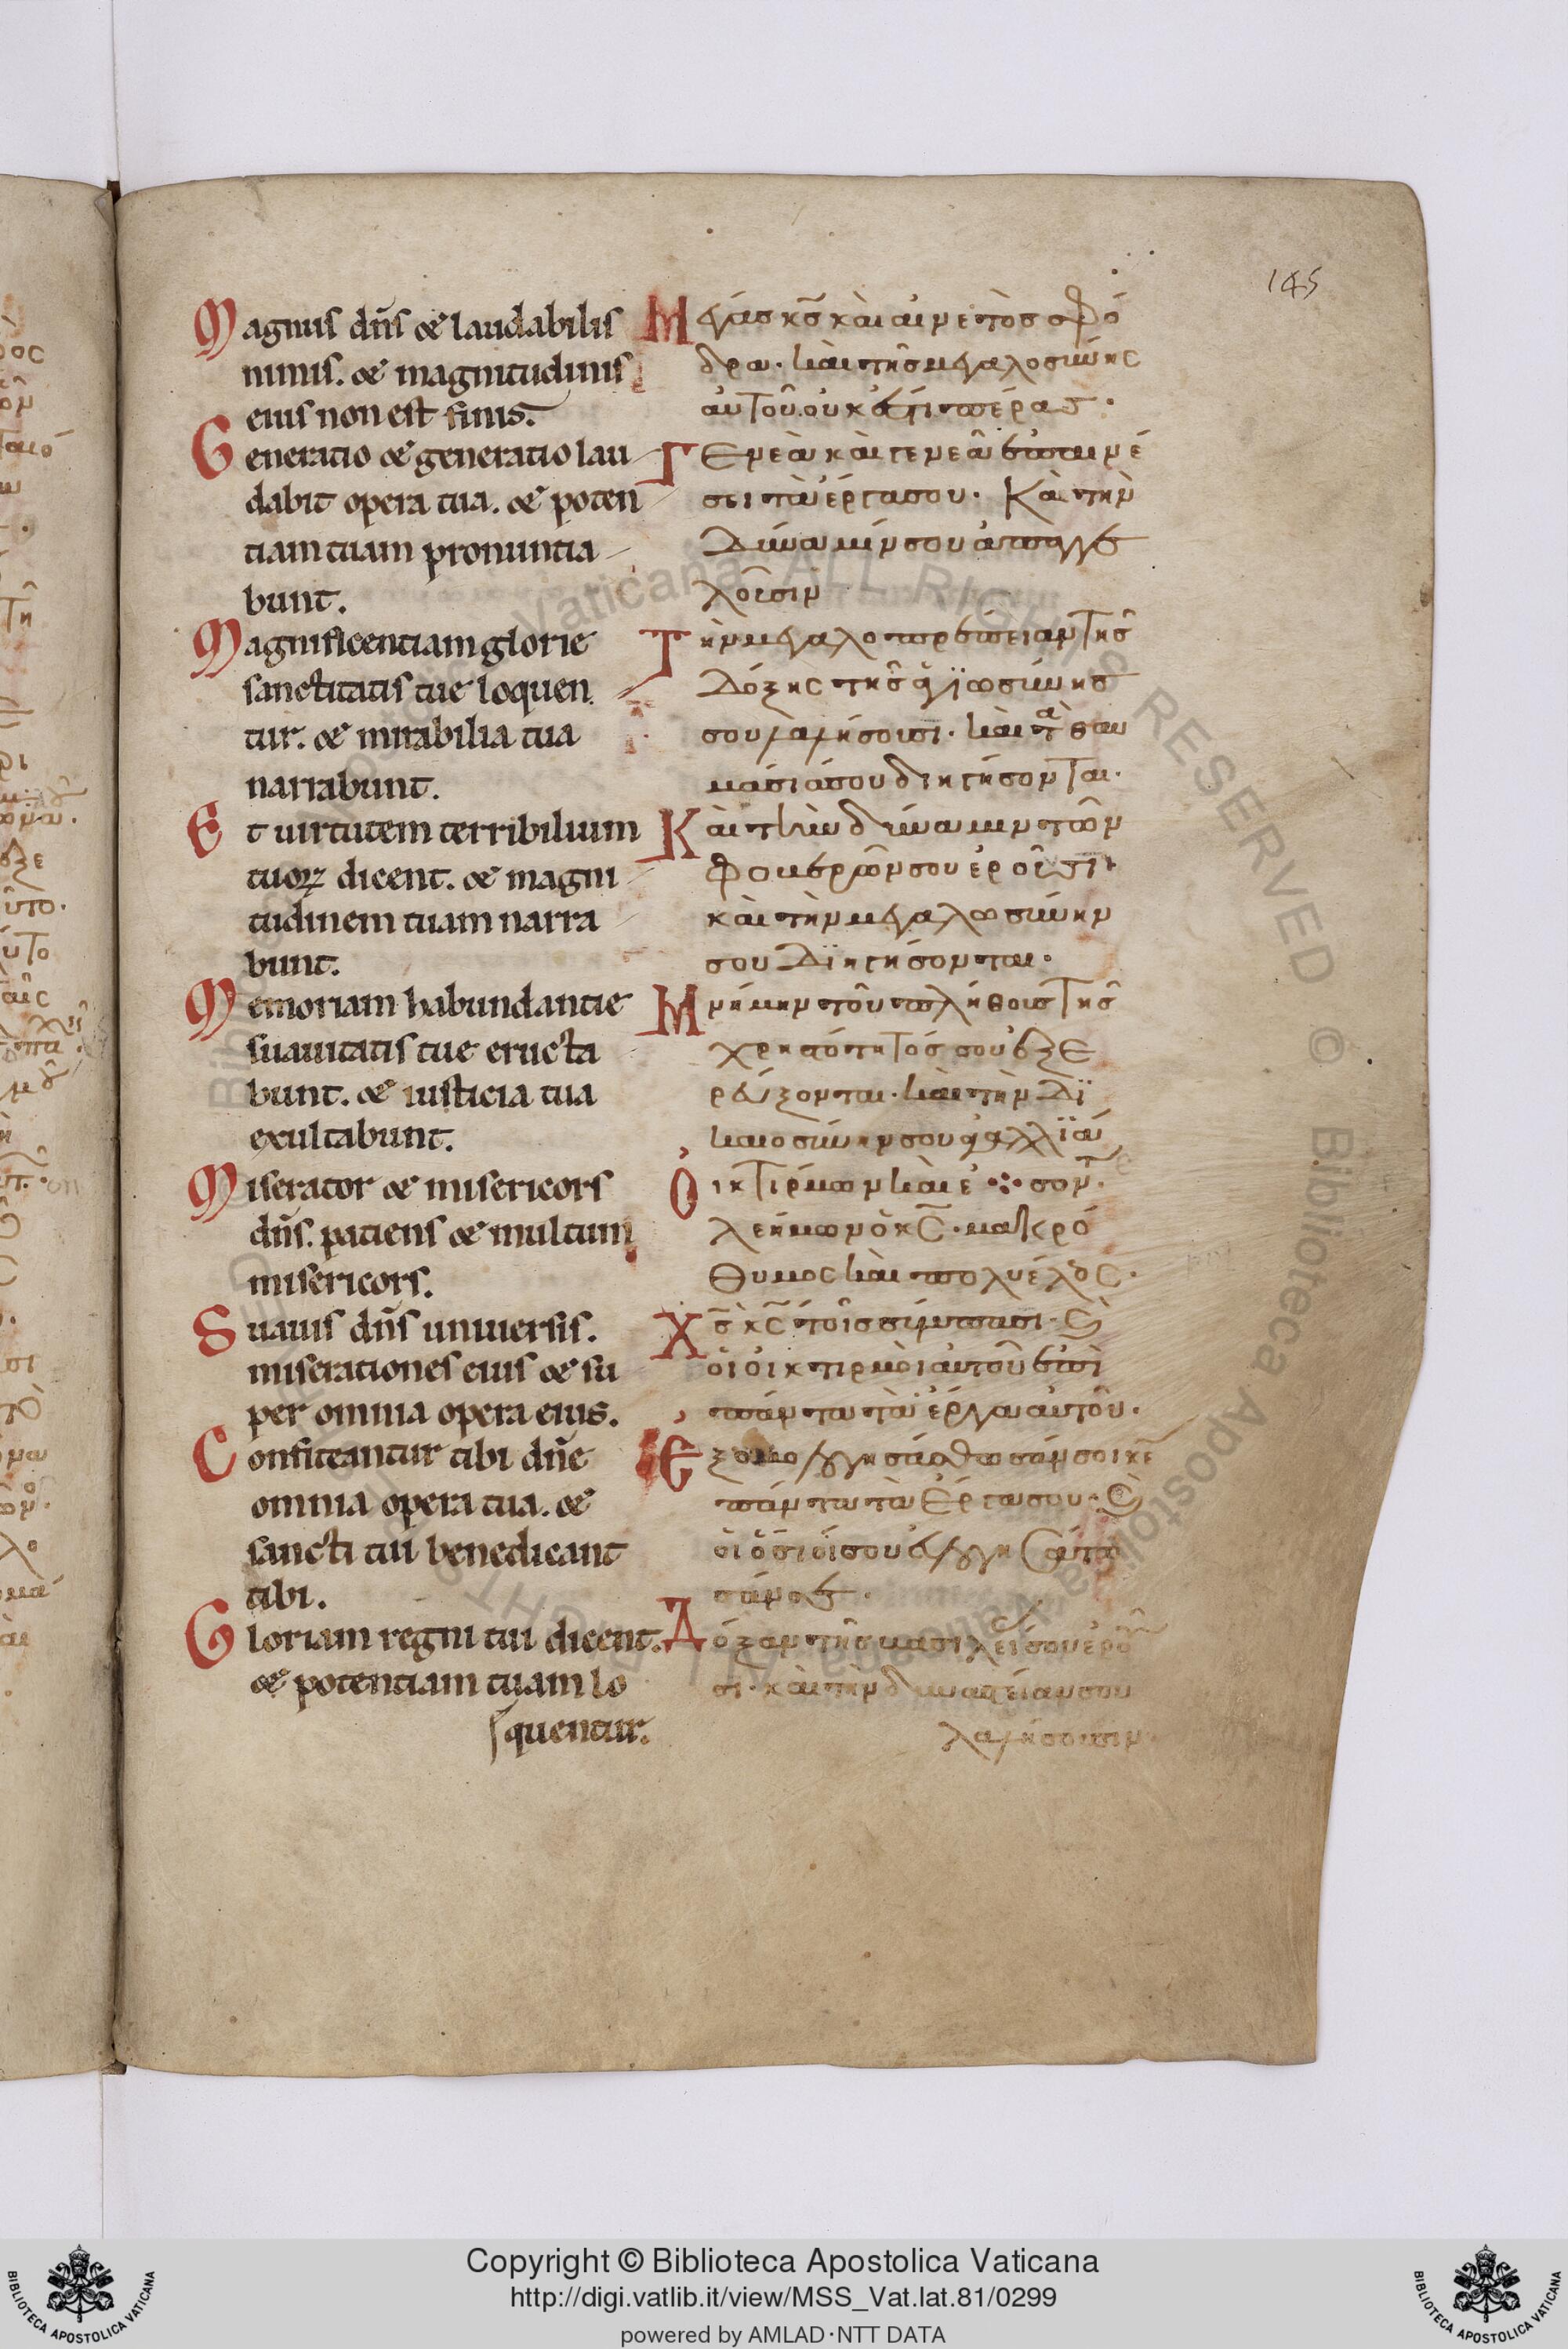 145
Magnus dñs & laudabilis
nimis. & magnitudinis
eius non est finis.
Generatio & generatio lau
dabit opera tua. & poten
tiam tuam pronuntia
bunt.
Magnificentiam glorie
sanctitatis tue loquen
tur. & mirabilia tua
narrabunt.
Et uirtutem terribilium
tuoꝝ dicent. & magni
tudinem tuam narra
bunt.
Memoriam habundantie
suauitatis tue eructa
bunt. & iusticia tua
exultabunt.
Miserator & misericors
dñs. patiens & multum
misericors.
Suauis dñs uniuersis.
miserationes eius & su
per omnia opera eius.
Confiteantur tibi dñe
omnia opera tua. &
sancti tui benedicant
tibi.
Gloriam regni tui dicent.
& potentiam tuam lo
quentur.
Μεγάσ κ̅σ̅ καὶ αἰνετὸσ σφό
δρα. καὶ τῆσ μεγαλοσύνης
αὐτοῦ οὐκ ἔστι πέρασ.
Γενεὰ καὶ γενεὰ ἐπαινέ
σει τὰ ἔργα σου. Καὶ τὴν
Δύναμίν σου ἀπαγγε
λοῦσιν
Τὴν μεγαλοπρέπειαν τῆσ
Δόξης τῆσ ἁγϊωσύνησ
σου λαλήσουσι. καὶ τὰ θαυ
μάσιά σου διηγήσονται.
Καὶ τὴν δύναμιν τῶν
Φουερῶν σου ἐροῦσι.
καὶ τὴν μεγαλωσύνην
σου Δϊηγήσονται.
Μνήμην τοῦ πλήθουσ τῆσ
χρηστότητόσ σου ἐξε
ρεύξονται. καὶ τὴν Δϊ
καιοσύνην σου ἀγαλλϊά
Ὀικτίρμων καὶ ἐ ⁘ σον̅τ.
λεήμων ὁ κ̅ς̅. μακρό
Θυμος καὶ πολυέλεος.
Χ̅σ̅ κ̅ς̅ τοῖσ σύμπασι. Ϗ
οἱ οἰκτιρμοὶ αὐτοῦ ἐπὶ
πάντα τὰ ἔργα αὐτοῦ.
πάντα τὰ ἔργα σου. Ϗ
οἱ ὅσιοί σου
Δόξαν τῆσ
σι. καὶ τὴν δυναστείαν σου
λαλήσουσιν
Copyright © Biblioteca Apostolica Vaticana
http://digi.vatlib.it/view/MSS_Vat.lat.81/0299
powered by AMLAD·NTT DATA
BIBLIOTECA APOSTOLICA VATICANA
BIBLIOTECA APOSTOLICA VATICANA